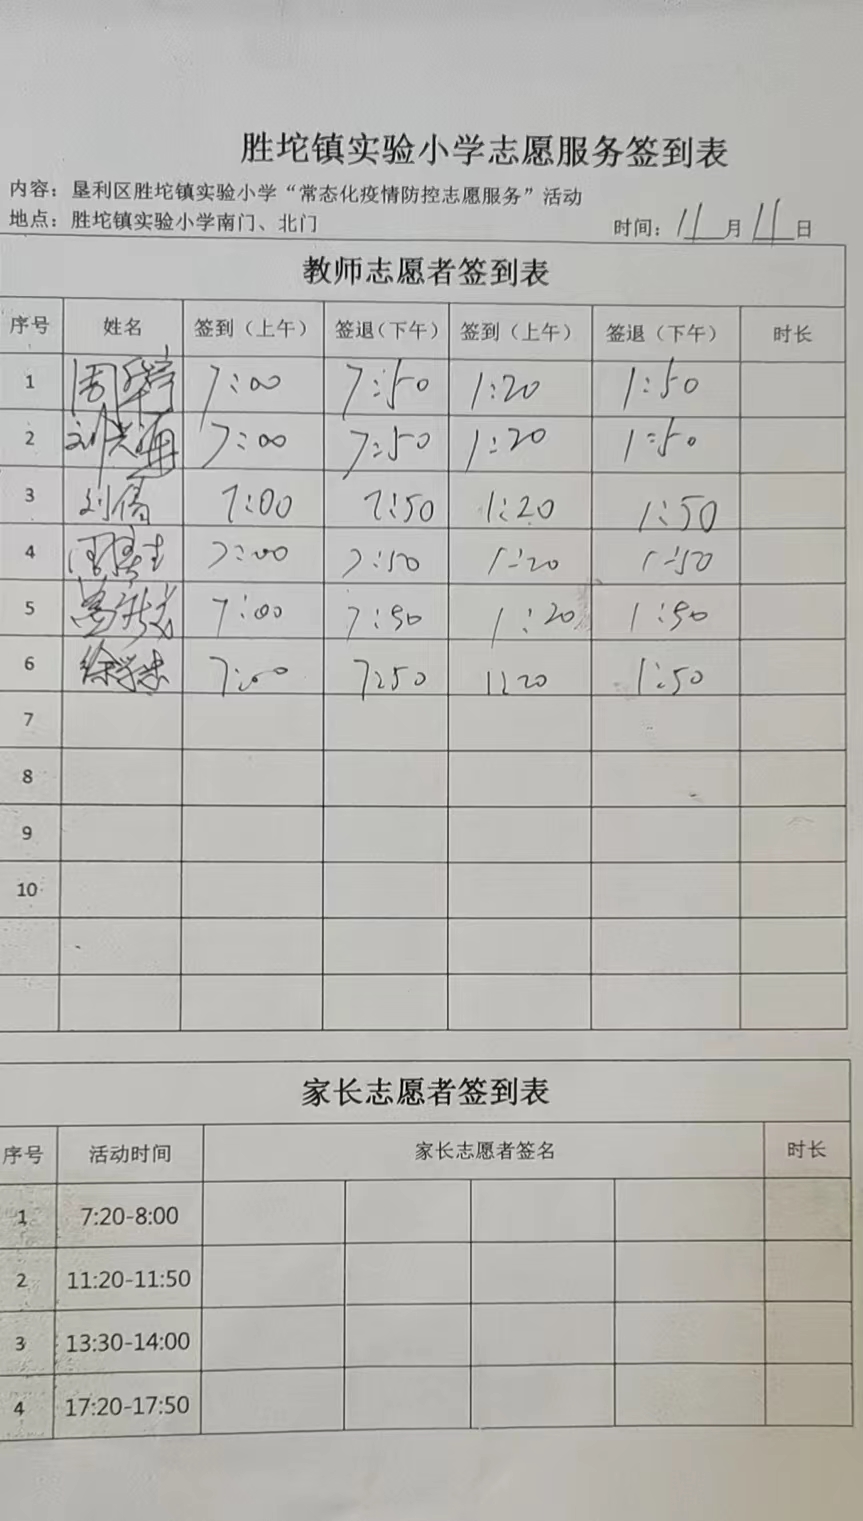 胜坨镇实验小学志愿服务签到表
内容：垦利区胜坨镇实验小学“常态化疫情防控志愿服务”活动
地点：胜坨镇实验小学南门、北门 时间：11月11日
教师志愿者签到表
序号 姓名 签到（上午） 签退（下午） 签到（上午） 签退（下午） 时长
1 7:00 7:50 1:20 1:50
2 7:00 7:50 1:20 1:50
3 刘倩 7:00 7:50 1:20 1:50
4 7:00 7:50 1:20 1:50
5 7:00 7:50 1:20 1:50
6 7:00 7:50 1:20 1:50
7
8
9
10
家长志愿者签到表
序号 活动时间 家长志愿者签名 时长
1 7:20-8:00
2 11:20-11:50
3 13:30-14:00
4 17:20-17:50